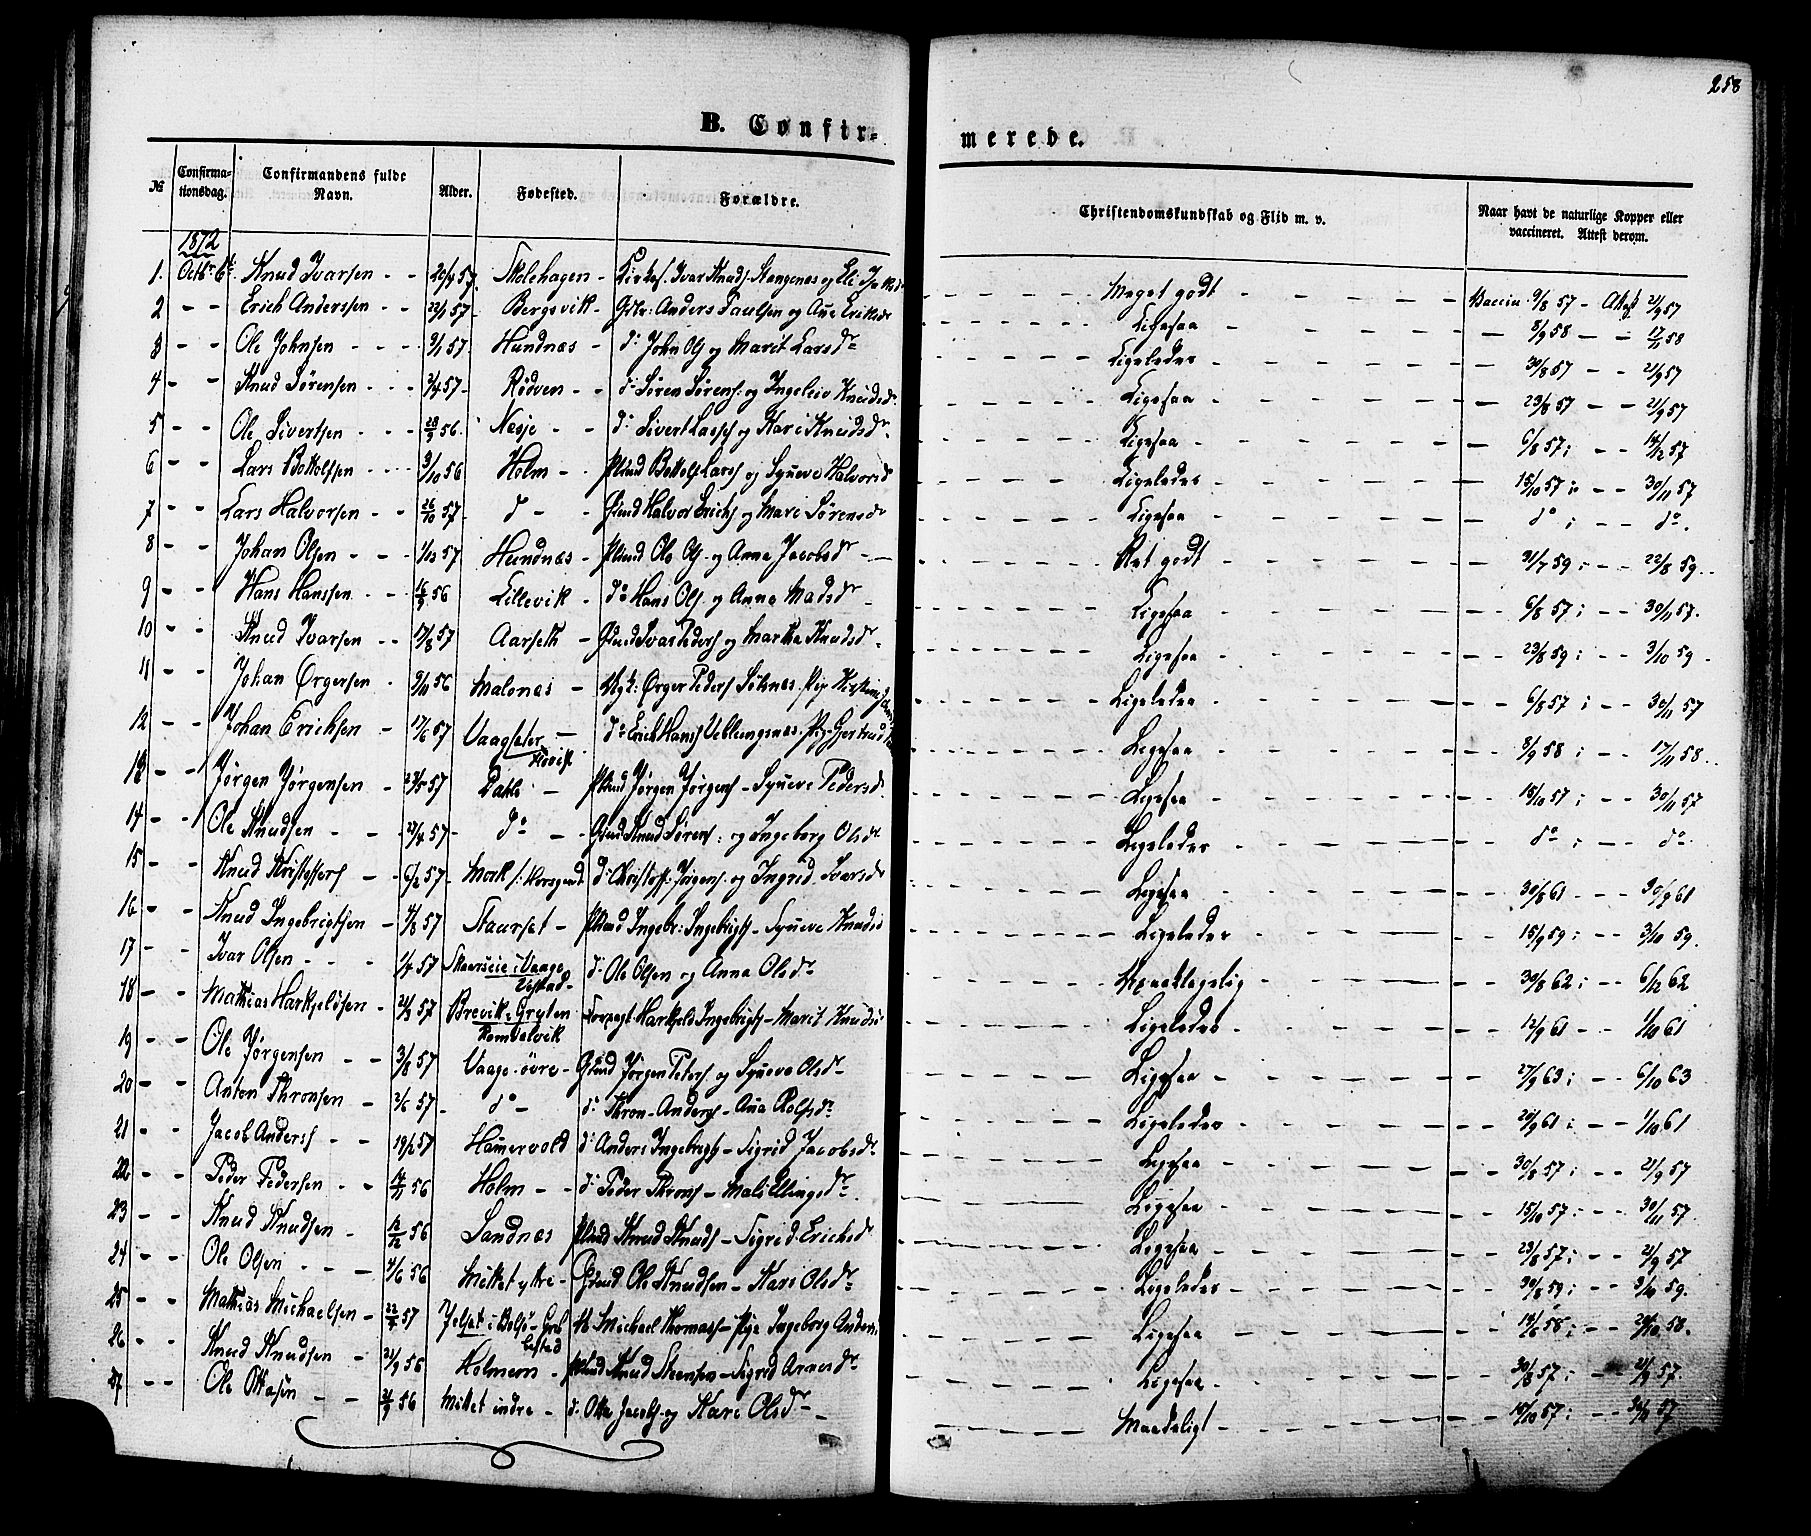 258
B. Confirmerede.
№ Confirmationsdag. Confirmandens fulde Navn. Alder. Fødested. Forældre. Christendomskundskab og Flid m. v. Naar havt de naturlige Kopper eller vaccineret. Attest derom.
1872
1. Octbr 6te Knud Ivarsen - - 20/4 57. Skolehagen - Kirkes. Ivar Knuds. Stengenes og Eli - Meget godt - Vaccin. 9/8 57 - Attest 21/9 57
2 - - Erich Anderssen - - 22/1 57 - Bergsvik - Gbr: Anders Paulsen og Ane Eriksd - Ligesaa - 8/9 58 - - 17/11 58
3 - - Ole Johnsen - - - 9/1 57 - Hundnæs - do John Ols og Marit Larsdr - Ligeledes - 30/8 57 - - 21/9 57
4 - - Knud Sørensen - - - 2/4 57 - Rødven - - do Søren Sørens. og Ingeleiv Knudsdr - Ligesaa - 23/8 57 - - 21/9 57
5 - - Ole Sivertsen - - - 28/9 56. Nesje - - do Sivert Larss og Kari Knudsdr - Ligesaa - 6/8 57; - - 14/12 57
6 - - Lars Bottolfsen - - - 3/10 56 Holm - - Plmd Bottolf Larss og Synneve Halvorsd - Ligeledes - 15/10 57; - - 30/11 57
7 - - Lars Halvorsen - - 26/10 57. do - - Gmd Halvor Erichs og Mari Sørensdr - Ligesaa - do; - - do.
8 - - Johan Olsen - - 1/12 57 Hundnæs - Plmd Ole Ols. og Anna Jacobsdr - Ret godt - 31/7 59; - - 22/8 59
9 - - Hans Hanssen - - 56 Lillevik - do Hans Ols. og Anna Madsdr - Ligesaa - 6/8 57; - 30/11 57.
10 - - Knud Ivarsen - - 17/8 57 Aarseth - Gmd Ivar Peders og Martha Knudsdr - Ligesaa - 23/8 59; - - 3/10 59
11 - - Johan Ørgersen - 9/11 56 Malones - Ugk: Ørger Peders Søknes. Pige - Ligeledes - 6/8 57; - - 30/11 57
12 - - Johan Erichsen - 17/6 57 Vaagsæter - do Erich Hanss Veblungsnæs. Pig. Gjertrud - Ligesaa - 8/9 58; - - 17/11 58
13 - - Jørgen Jørgensen - 23/5 57 Dahle - Plmd Jørgen Jørgens - Synneve Pedersd. - Ligesaa - 15/10 57; - - 30/11 57
14 - - Ole Knudsen - - 27/4 57 - do - Gmd Knud Sørens: og Ingeborg Olsdr - Ligeledes - do; - - do
15 - - Knud Kristoffers - - 6/2 57 - Mork /: Korsgaard do Christoff: Jørgens. og Ingrid Ivarsdr - Ligesaa - 30/8 61 - - 30/9 61
16 - - Knud Ingebrigtsen - 4/8 57 Staurset - Plmd Ingebr: Ingebrigts - Synneve Knudsd - Ligeledes - 15/9 59; - - 3/10 59.
17 - - Ivar Olsen - - - 1/7 57 i Vaage do Ole Olsen og Anna Olsdr - Upaaklagelig - 30/8 62; - - 6/12 62
18 - - Mathias Harkjelsen - 21/3 57 Brevik i Grytten Harkjeld Ingebrigts - Marit Knudsd - Ligeledes - 12/9 61 - - 1/10 61
19 - - Ole Jørgensen - - 3/8 57 Vaage øvre - Gmd Jørgen Peters. og Synneve Olsdr - Ligesaa - 27/9 63; - - 6/10 63
20 - - Anton Thronsen - 2/6 57 - do - do Thron Anders - Ane Rolfsdr - Ligeledes - 20/9 61; - - 1/10 61
21 - - Jacob Anderss - - 19/2 57 Hammervold do Anders Ingebrigts - Sigrid Jacobsdr - Ligesaa - 30/8 57; - - 21/9 57
22 - - Peder Pedersen - - 14/11 56 Holm - - do Peder Throns - Mali Ellingsdr. - Ligesaa - 15/10 57; - - 30/11 57.
23 - - Knud Knudsen - 12/12 56 Sandnæs Plmd Knud Knuds - Sigrid Ericksdr - Ligesaa - 23/8 57; - - 21/9 57
24 - - Ole Olsen - - - 4/6 56 Mittet ytre - Gmd. Ole Knudsen - Kari Olsdr - Ligeledes - 30/8 59; - - 3/10 59.
25 - - Mathias Michaelsen - 57 i Bolsø Michael Thomass - Pige Ingeborg Andersd - Ligesaa - 14/6 58; - - 58.
26 - - Knud Knudsen - 21/9 56 Holmem - Plmd Knud Steensen - Sigrid Arnesdr - Ligesaa - 30/8 57; - - 21/9 57.
27 - - Ole Ottasen - - 56 Mittet indre - do Otta Jacobs. og Kari Olsdr - Maadeligt - 10/10 57; - - 57